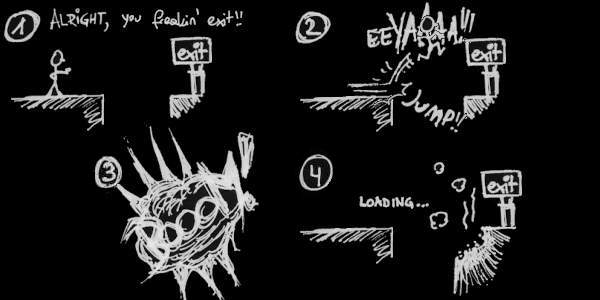 1
ALRIGHT, you freakin' exit!!
exit
2
EEYAAAA!!!
exit
JUMP!!
3
4
LOADING...
exit